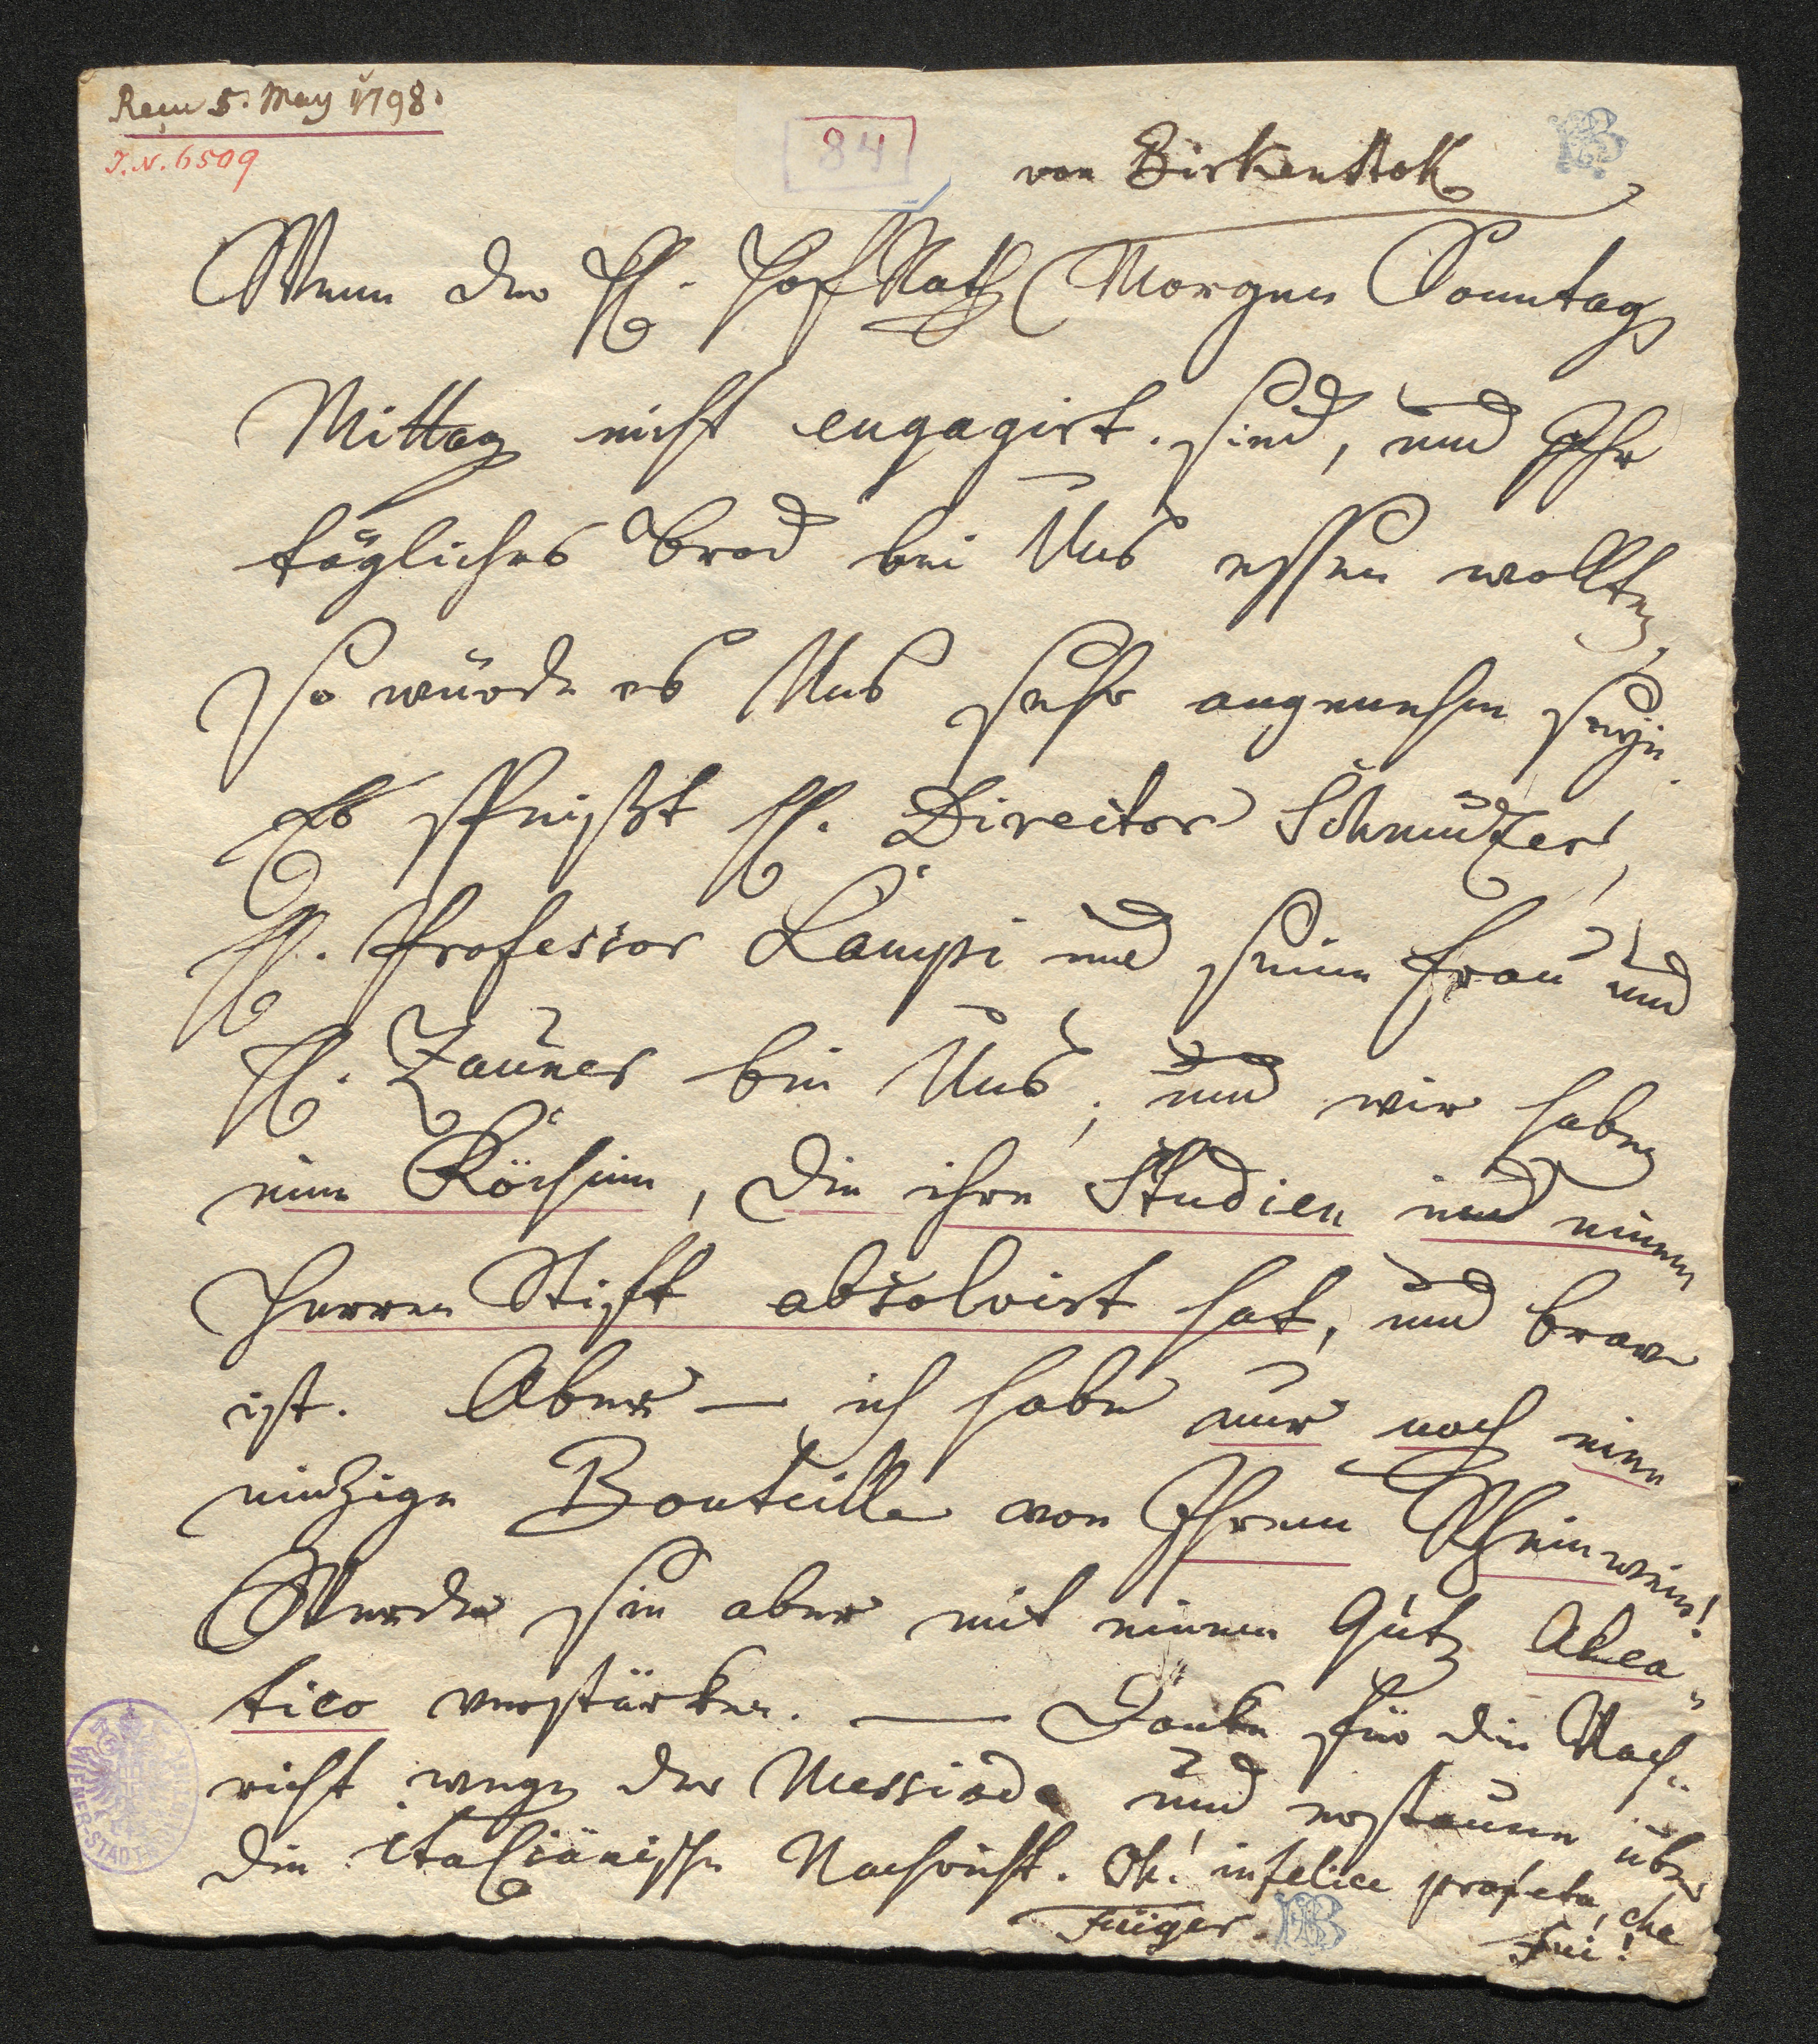 Reçu 5. May 1798.
J.N. 6509
84
von Birkenstok
Wenn der H. HofRath Morgen Sonntag
Mittag nicht engagirt sind, und Ihr
tägliches Brod bei Uns essen wollten,
so würde es Uns sehr angenehm seyn.
Es speißt H. Director Schmutzer,
H. Professor Lampi und seine Frau und
H. Zauner bei Uns, und wir haben
eine Köchinn, die ihre Studien in einem
Herren Stift absolvirt hat, und brav
ist. Aber — ich habe nur noch eine
einzige Bouteille von Ihrem Rheinwein!
Werde sie aber mit einem Gutz Alea
tico verstärken. — Danke für die Nach-
richt wegen der Messiade und erstaune über
die italiänische Nachricht. Oh! infelice profeta, che
Fui!
Füger.